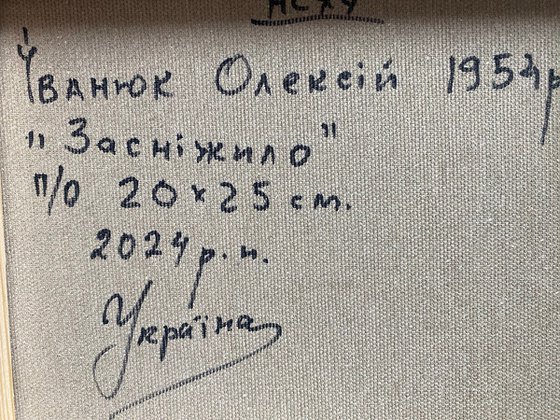 НСХУ
Іванюк Олексій 1954р
"Засніжило"
п/о 20×25 см.
2024 р. н.
Україна